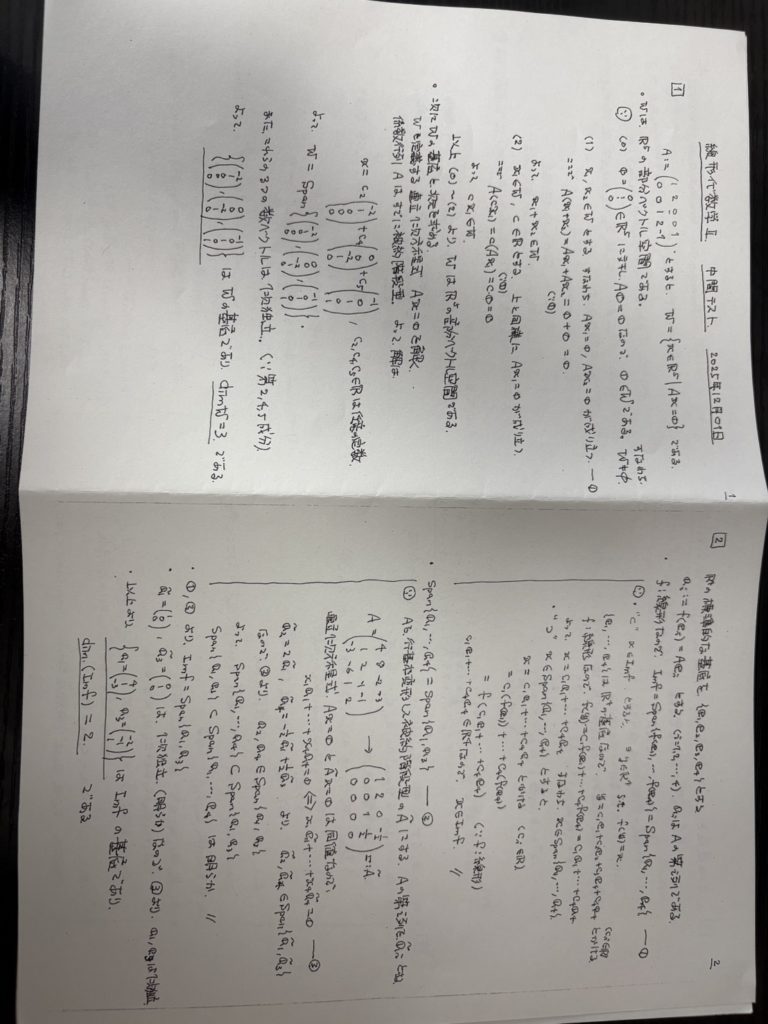 線形代数学Ⅱ 中間テスト 2025年12月01日
1
[1]
A := (1 2 0 0 1 / 0 0 1 2 -1) とすると W = {x∈R⁵ | Ax = 0} である.
・Wは R⁵の部分ベクトル空間である.
∵ (0) 0 = (0 ⋮ 0) ∈ R⁵ に対し A0 = 0 なので 0∈W である. すなわち W ≠ φ.
(1) x₁, x₂∈W とする すなわち Ax₁ = 0, Ax₂ = 0 が成り立つ. ―①
ここで A(x₁+x₂) = Ax₁ + Ax₂ = 0 + 0 = 0. (∵①)
よって x₁ + x₂∈W.
(2) x∈W, c∈R とする. 上と同様に Ax = 0 が成り立つ.
ここで A(cx) = c(Ax) = c0 = 0 (∵①)
よって cx∈W.
以上 (0)~(2) より, Wは R⁵の部分ベクトル空間である.
・次に Wの基底と次元を求める.
Wを定義する連立1次方程式 Ax = 0 を解く.
係数行列 A は すでに簡約階段型. よって 解は.
x = c₂(-2 1 0 0 0) + c₄(0 0 -2 1 0) + c₅(-1 0 1 0 1), c₂, c₄, c₅∈R は任意定数.
よって W = Span{(-2 1 0 0 0), (0 0 -2 1 0), (-1 0 1 0 1)}.
また これら3つの数ベクトルは1次独立. (∵第2,4,5成分)
よって.
{(-2 1 0 0 0), (0 0 -2 1 0), (-1 0 1 0 1)} は Wの基底であり. dim W = 3. である.
2
[2]
R⁴の標準的な基底を {e₁, e₂, e₃, e₄} とする
aᵢ := f(eᵢ) = Aeᵢ とする (i=1,2,…,4) aᵢは Aの第i列である.
f:線形なので Imf = Span{f(e₁), … f(e₄)} = Span{a₁, …, a₄} ―①
∵・"⊂" x∈Imf とすると, ∃y∈R⁴ s.t. f(y) = x.
{e₁, …, e₄}は R⁴の基底なので y = c₁e₁+c₂e₂+c₃e₃+c₄e₄ とかける (cᵢ∈R)
f:線形なので f(y) = c₁f(e₁)+…+c₄f(e₄) = c₁a₁+…+c₄a₄
よって x = c₁a₁+…+c₄a₄ すなわち x∈Span{a₁, …, a₄}
・"⊃" x∈Span{a₁, …, a₄} とすると.
x = c₁a₁+…+c₄a₄ とかける (cᵢ∈R)
= c₁f(e₁)+…+c₄f(e₄)
= f(c₁e₁+…+c₄e₄) (∵f:線形)
c₁e₁+…+c₄e₄∈R⁴ なので x∈Imf. //
・Span{a₁, …, a₄} = Span{a₁, a₃} ―②
∵ Aを行基本変形して簡約階段型の Ã にする. Ãの第i列を ãᵢ とする
Ã =: (1 2 0 ½ / 0 0 1 ½ / 0 0 0 0)
連立1次方程式. Ax = 0 と Ãx = 0 は同値なので.
x₁a₁+…+x₄a₄ = 0 ⇔ x₁ã₁+…+x₄ã₄ = 0 ―③
なので ③より. a₂, a₄∈Span{a₁, a₃}
よって Span{a₁, …, a₄} ⊂ Span{a₁, a₃}
Span{a₁, a₃} ⊂ Span{a₁, …, a₄} は 明らか. //
・①, ②より. Imf = Span{a₁, a₃}
ã₁ = (1 0 0), ã₃ = (0 1 0) は 1次独立 (明らか) なので. ③より. a₁, a₃は1次独立
・以上より
dim(Imf) = 2. である